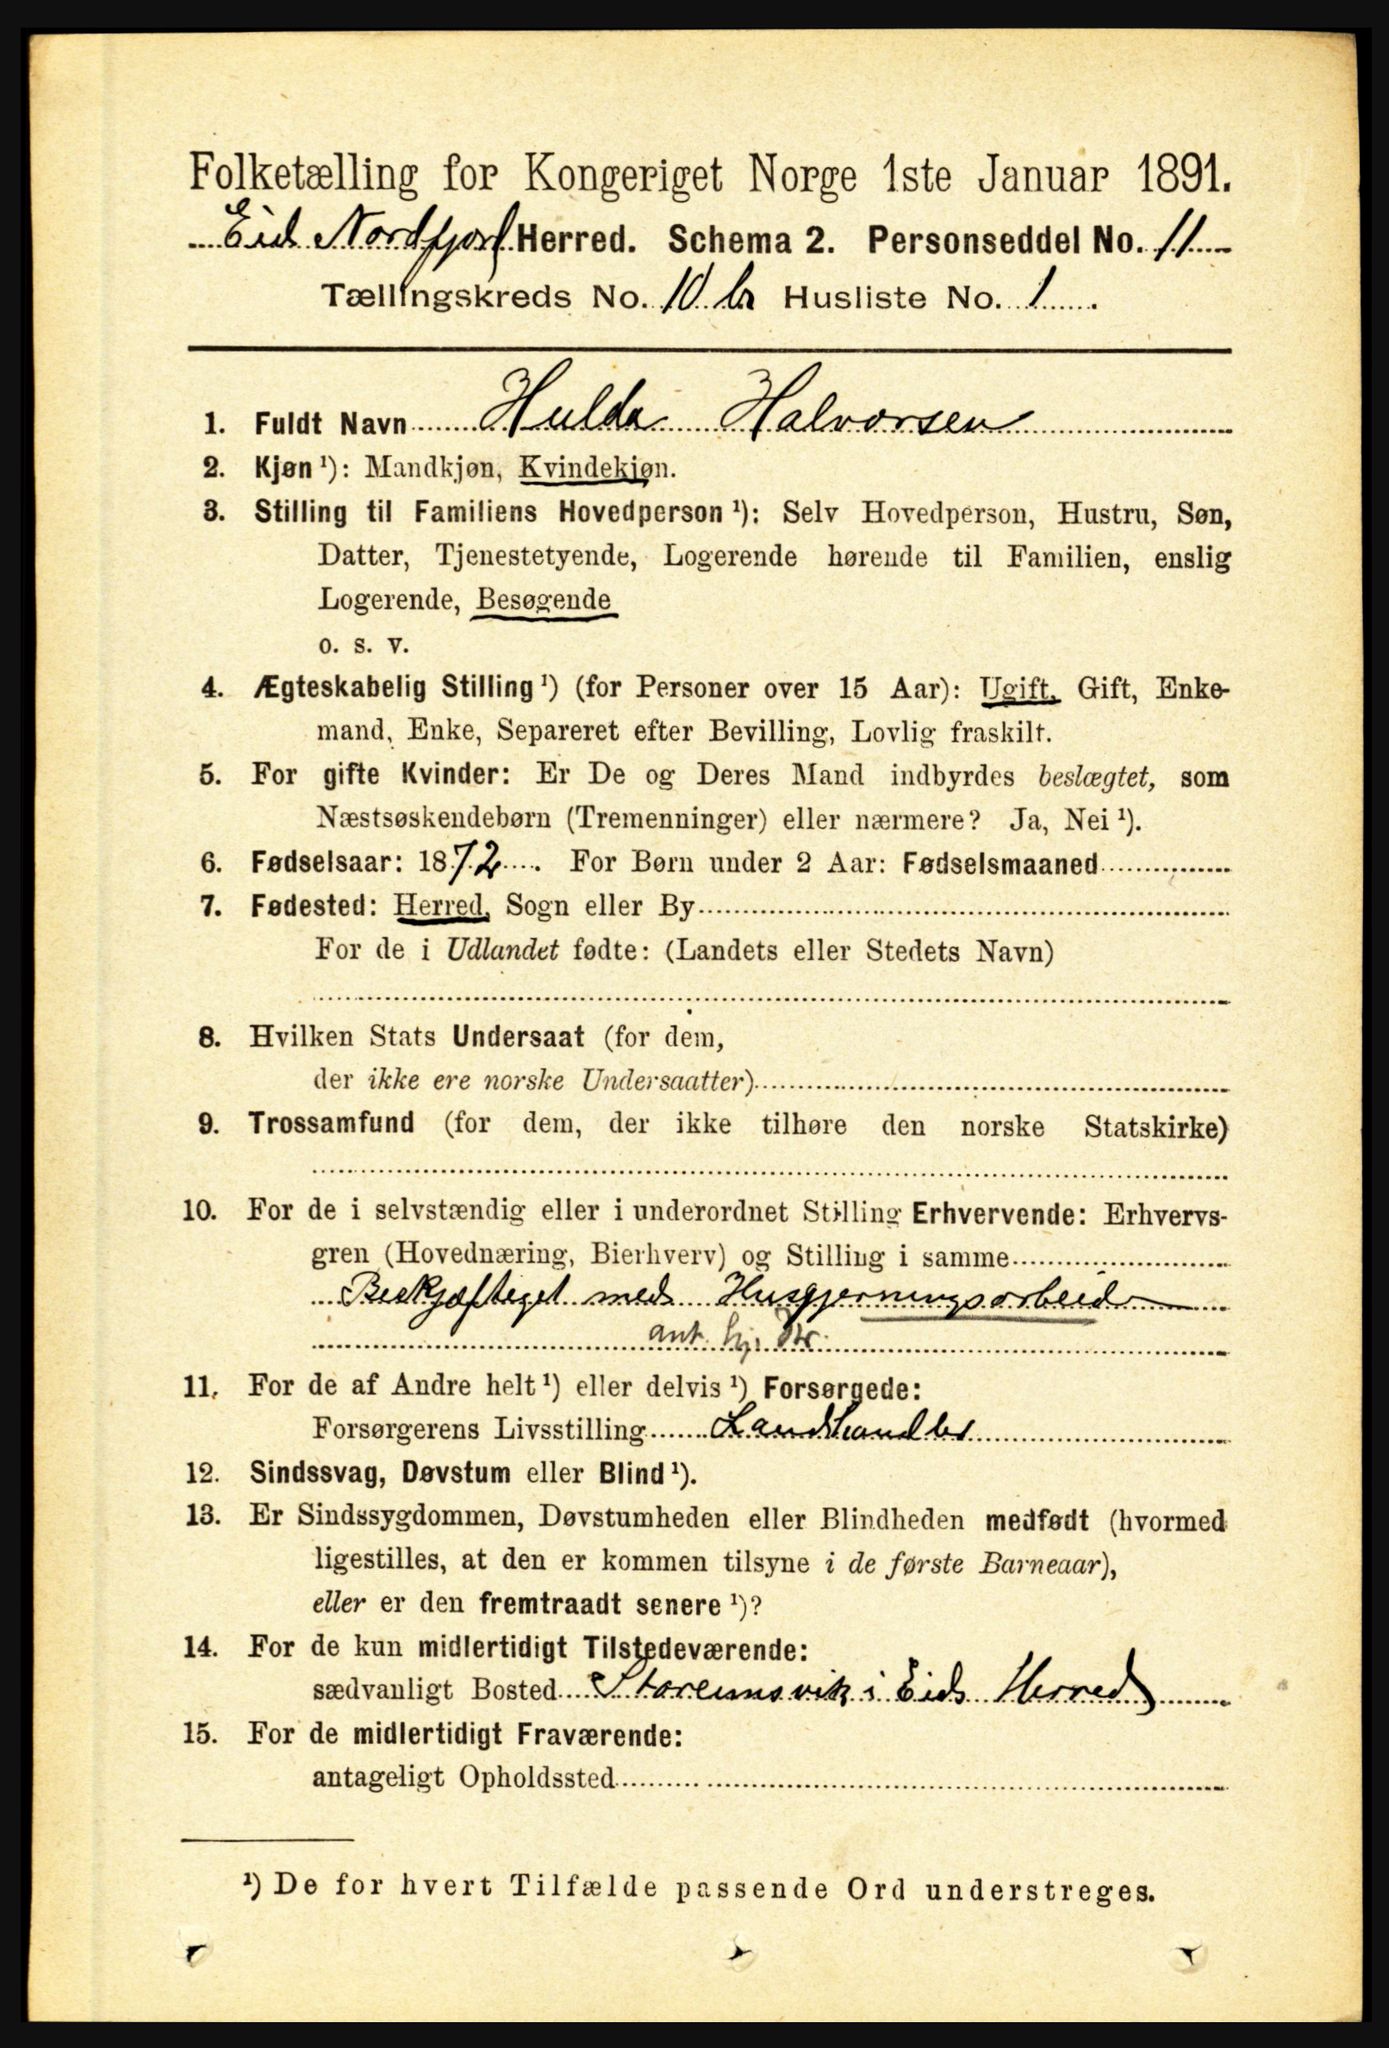 Folketælling for Kongeriget Norge 1ste Januar 1891.
Eid Nordfjord Herred. Schema 2. Personseddel No. 11
Tællingskreds No. 10 b Husliste No. 1
1. Fuldt Navn Hulda Halvorsen
2. Kjøn ¹): Mandkjøn, Kvindekjøn.
3. Stilling til Familiens Hovedperson ¹): Selv Hovedperson, Hustru, Søn,
Datter, Tjenestetyende, Logerende hørende til Familien, enslig
Logerende, Besøgende
o. s. v.
4. Ægteskabelig Stilling ¹) (for Personer over 15 Aar): Ugift, Gift, Enke-
mand, Enke, Separeret efter Bevilling, Lovlig fraskilt.
5. For gifte Kvinder: Er De og Deres Mand indbyrdes beslægtet, som
Næstsøskendebørn (Tremenninger) eller nærmere? Ja, Nei ¹).
6. Fødselsaar: 1872. For Børn under 2 Aar: Fødselsmaaned
7. Fødested: Herred, Sogn eller By
For de i Udlandet fødte: (Landets eller Stedets Navn)
8. Hvilken Stats Undersaat (for dem,
der ikke ere norske Undersaatter)
9. Trossamfund (for dem, der ikke tilhøre den norske Statskirke)
10. For de i selvstændig eller i underordnet Stilling Erhvervende: Erhvervs-
gren (Hovednæring, Bierhverv) og Stilling i samme
Beskjæftiget med Husgjerningsarbeide
ant. hj. Dtr.
11. For de af Andre helt ¹) eller delvis ¹) Forsørgede:
Forsørgerens Livsstilling Landhandler
12. Sindssvag, Døvstum eller Blind ¹).
13. Er Sindssygdommen, Døvstumheden eller Blindheden medfødt (hvormed
ligestilles, at den er kommen tilsyne i de første Barneaar),
eller er den fremtraadt senere ¹)?
14. For de kun midlertidigt Tilstedeværende:
sædvanligt Bosted Staremsvik i Eids Herred
15. For de midlertidigt Fraværende:
antageligt Opholdssted
¹) De for hvert Tilfælde passende Ord understreges.